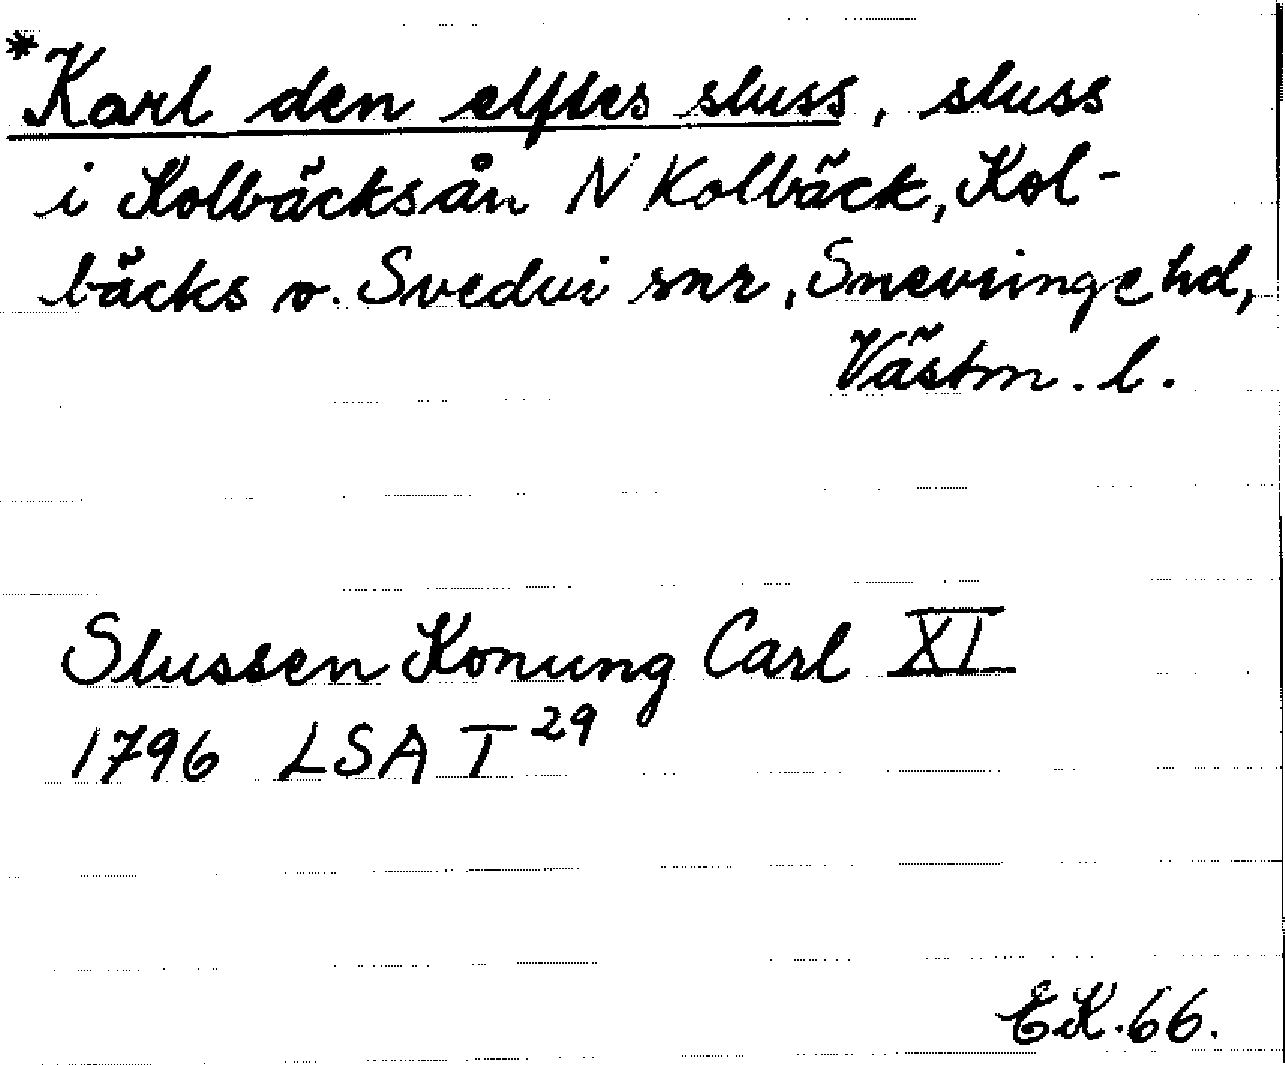 *Karl den elftes sluss, sluss
i Kolbäcksån N Kolbäck, Kol-
bäcks o. Svedvi snr, Snevringe hd,
Västm. l.
Slussen Konung Carl XI
1796 LSA T 29
EK. 66.